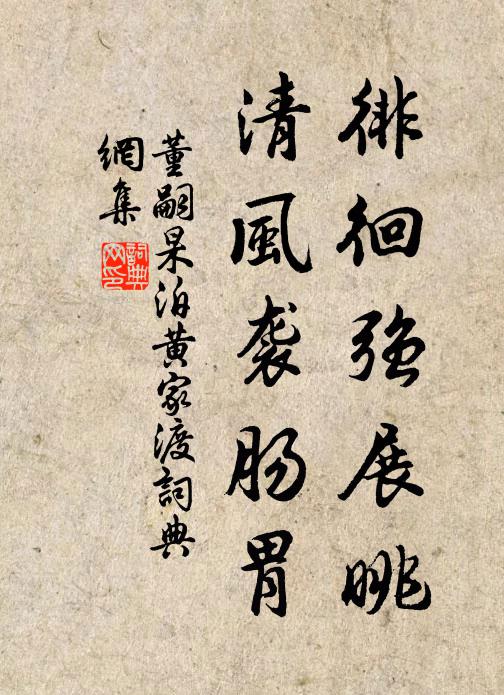 徘徊強展眺
清風袭肠胃
董嗣杲泊黄家渡詞典
網集
詞典
网印